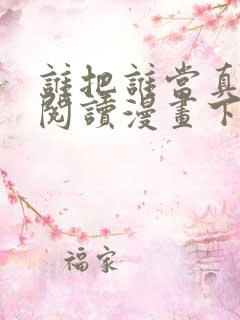 誰把誰當真
閱讀漫畫下
福家